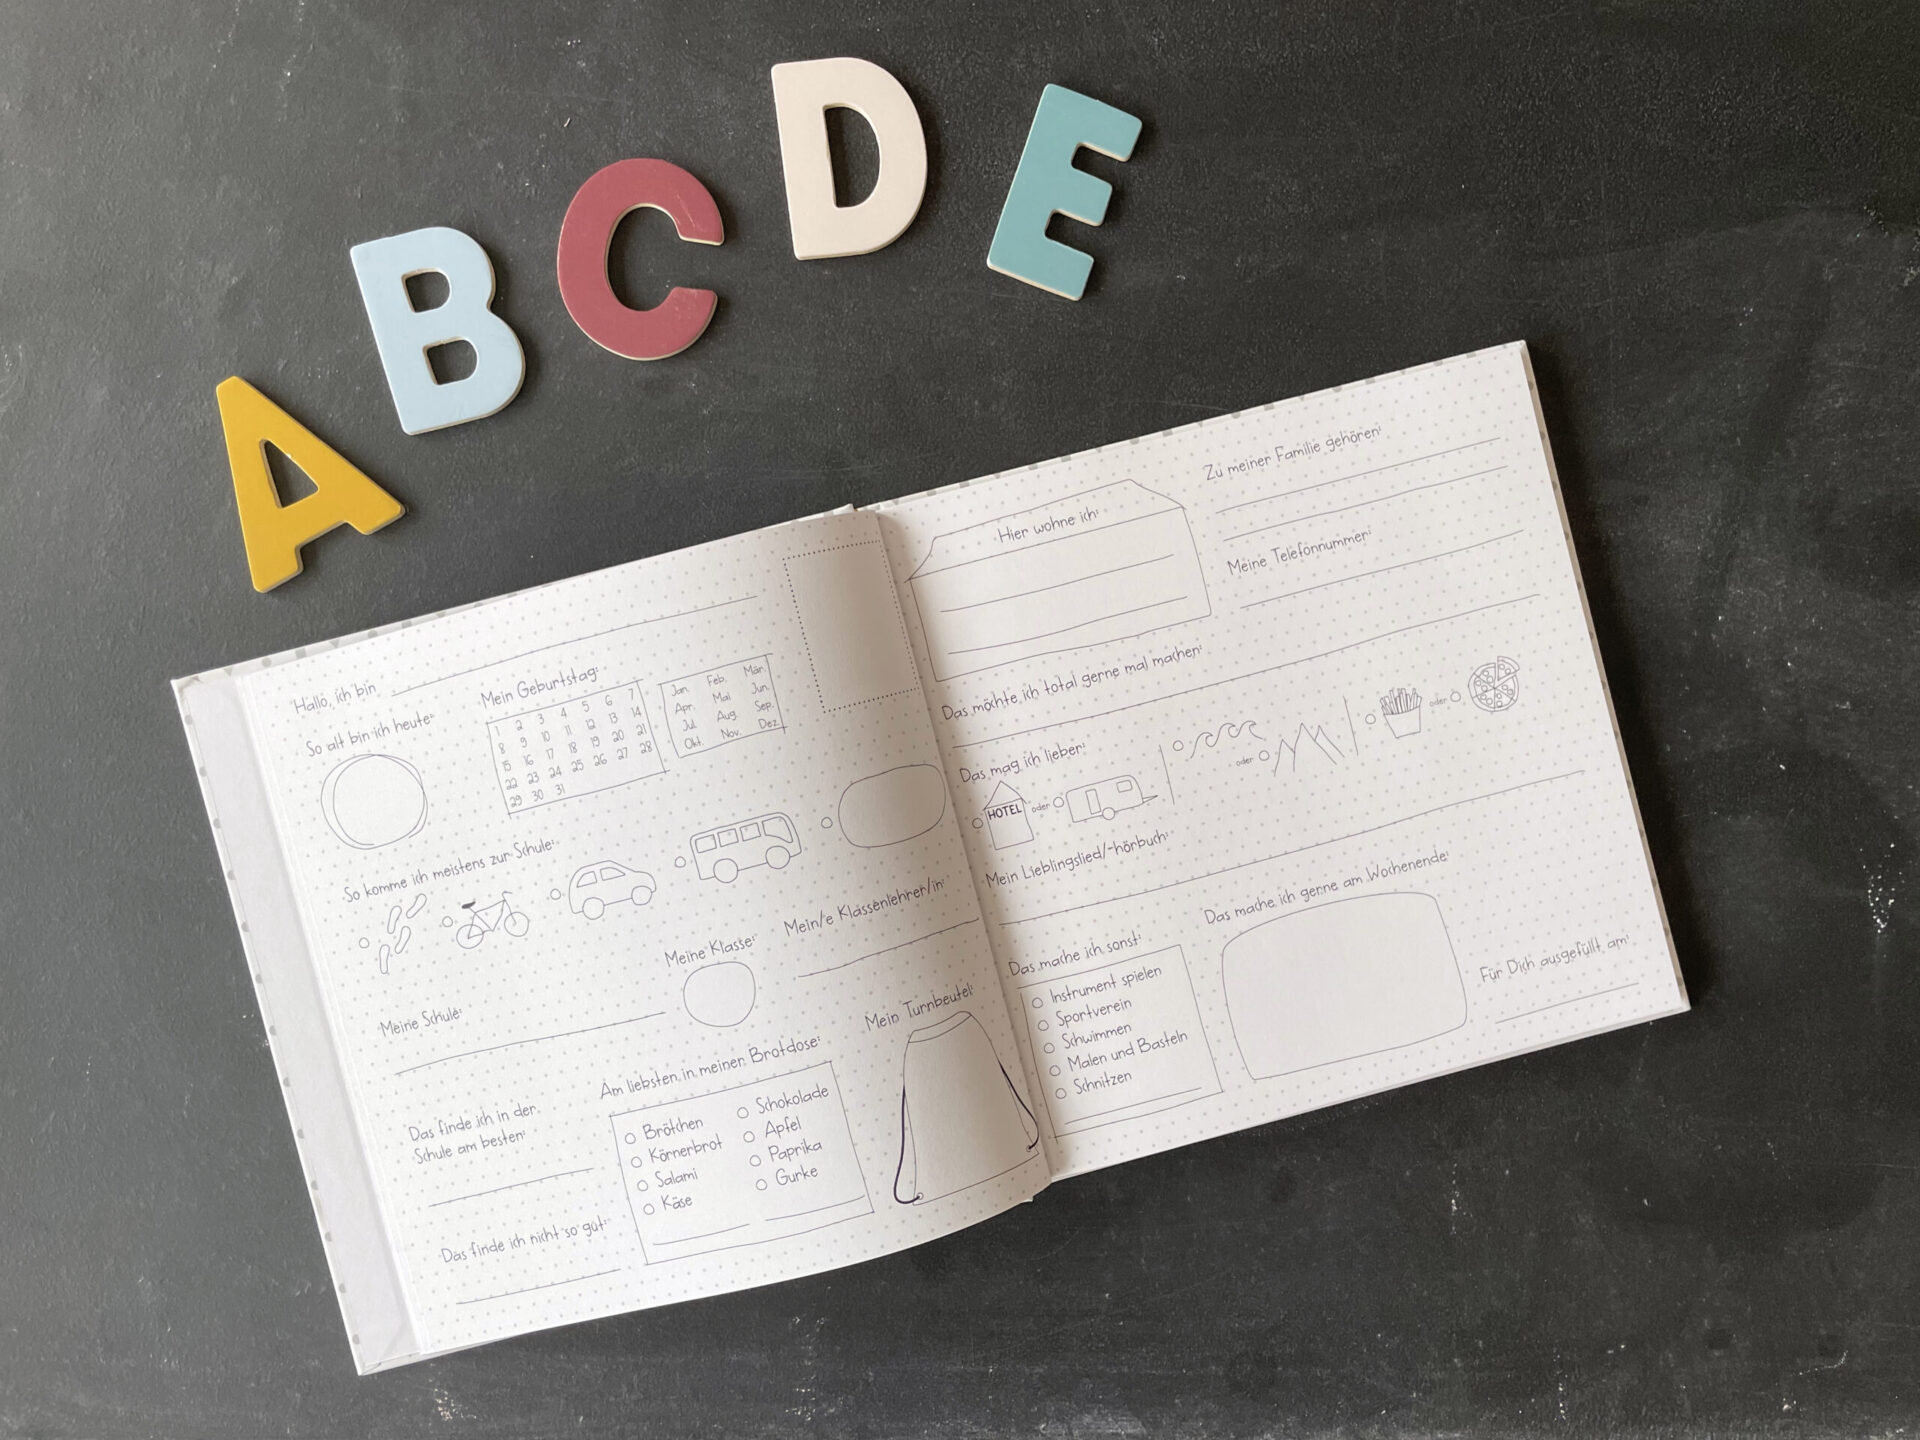 A
B
C
D
E
Hallo, ich bin
So alt bin ich heute:
Mein Geburtstag:
1 2 3 4 5 6 7
8 9 10 11 12 13 14
15 16 17 18 19 20 21
22 23 24 25 26 27 28
29 30 31
Jan. Feb. Mär.
Apr. Mai Jun.
Jul. Aug. Sep.
Okt. Nov. Dez.
So komme ich meistens zur Schule:
Meine Schule:
Meine Klasse:
Mein/e Klassenlehrer/in:
Das finde ich in der
Schule am besten:
Das finde ich nicht so gut:
Am liebsten in meiner Brotdose:
Brötchen
Körnerbrot
Salami
Käse
Schokolade
Apfel
Paprika
Gurke
Mein Turnbeutel:
Hier wohne ich:
Zu meiner Familie gehören:
Meine Telefonnummer:
Das möchte ich total gerne mal machen:
Das mag ich lieber:
HOTEL oder
oder
oder
Mein Lieblingslied/-hörbuch:
Das mache ich sonst:
Instrument spielen
Sportverein
Schwimmen
Malen und Basteln
Schnitzen
Das mache ich gerne am Wochenende:
Für Dich ausgefüllt am: